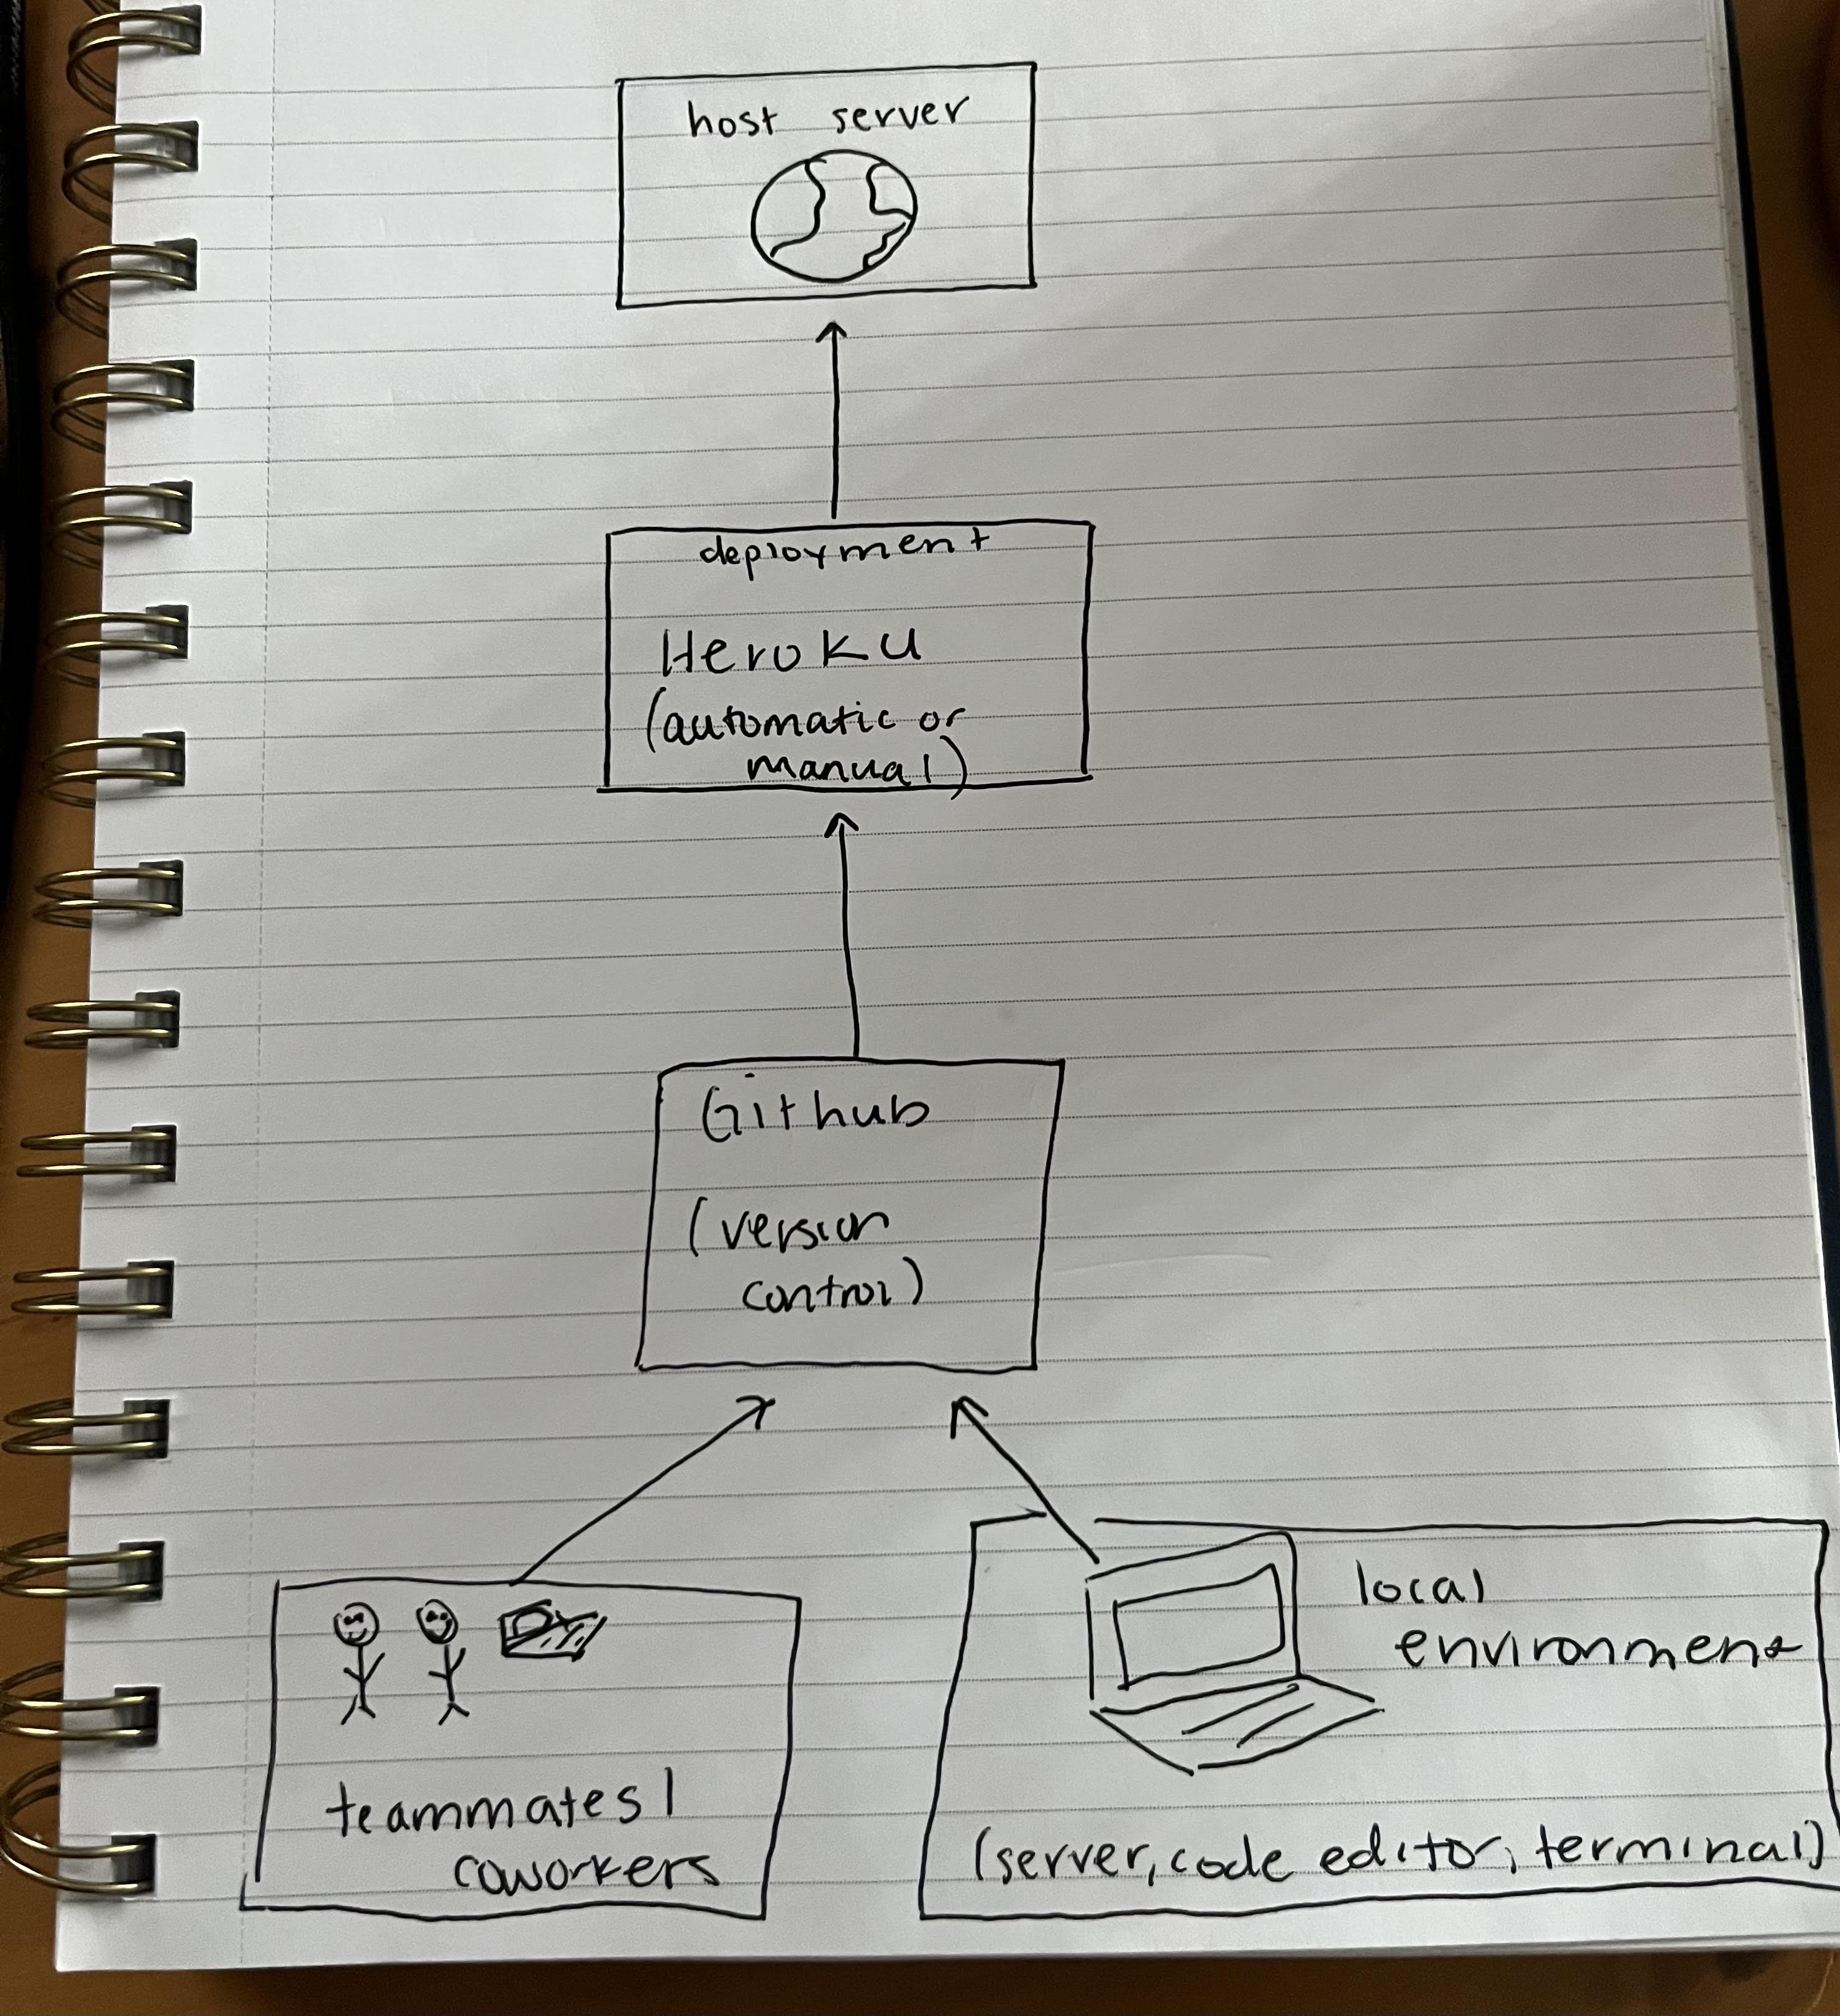 host server
deployment
Heroku
(automatic or
manual)
Github
(version
control)
teammates/
coworkers
local
environment
(server, code editor, terminal)